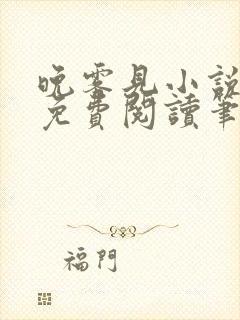 晚零見小說
免費閱讀筆
福門